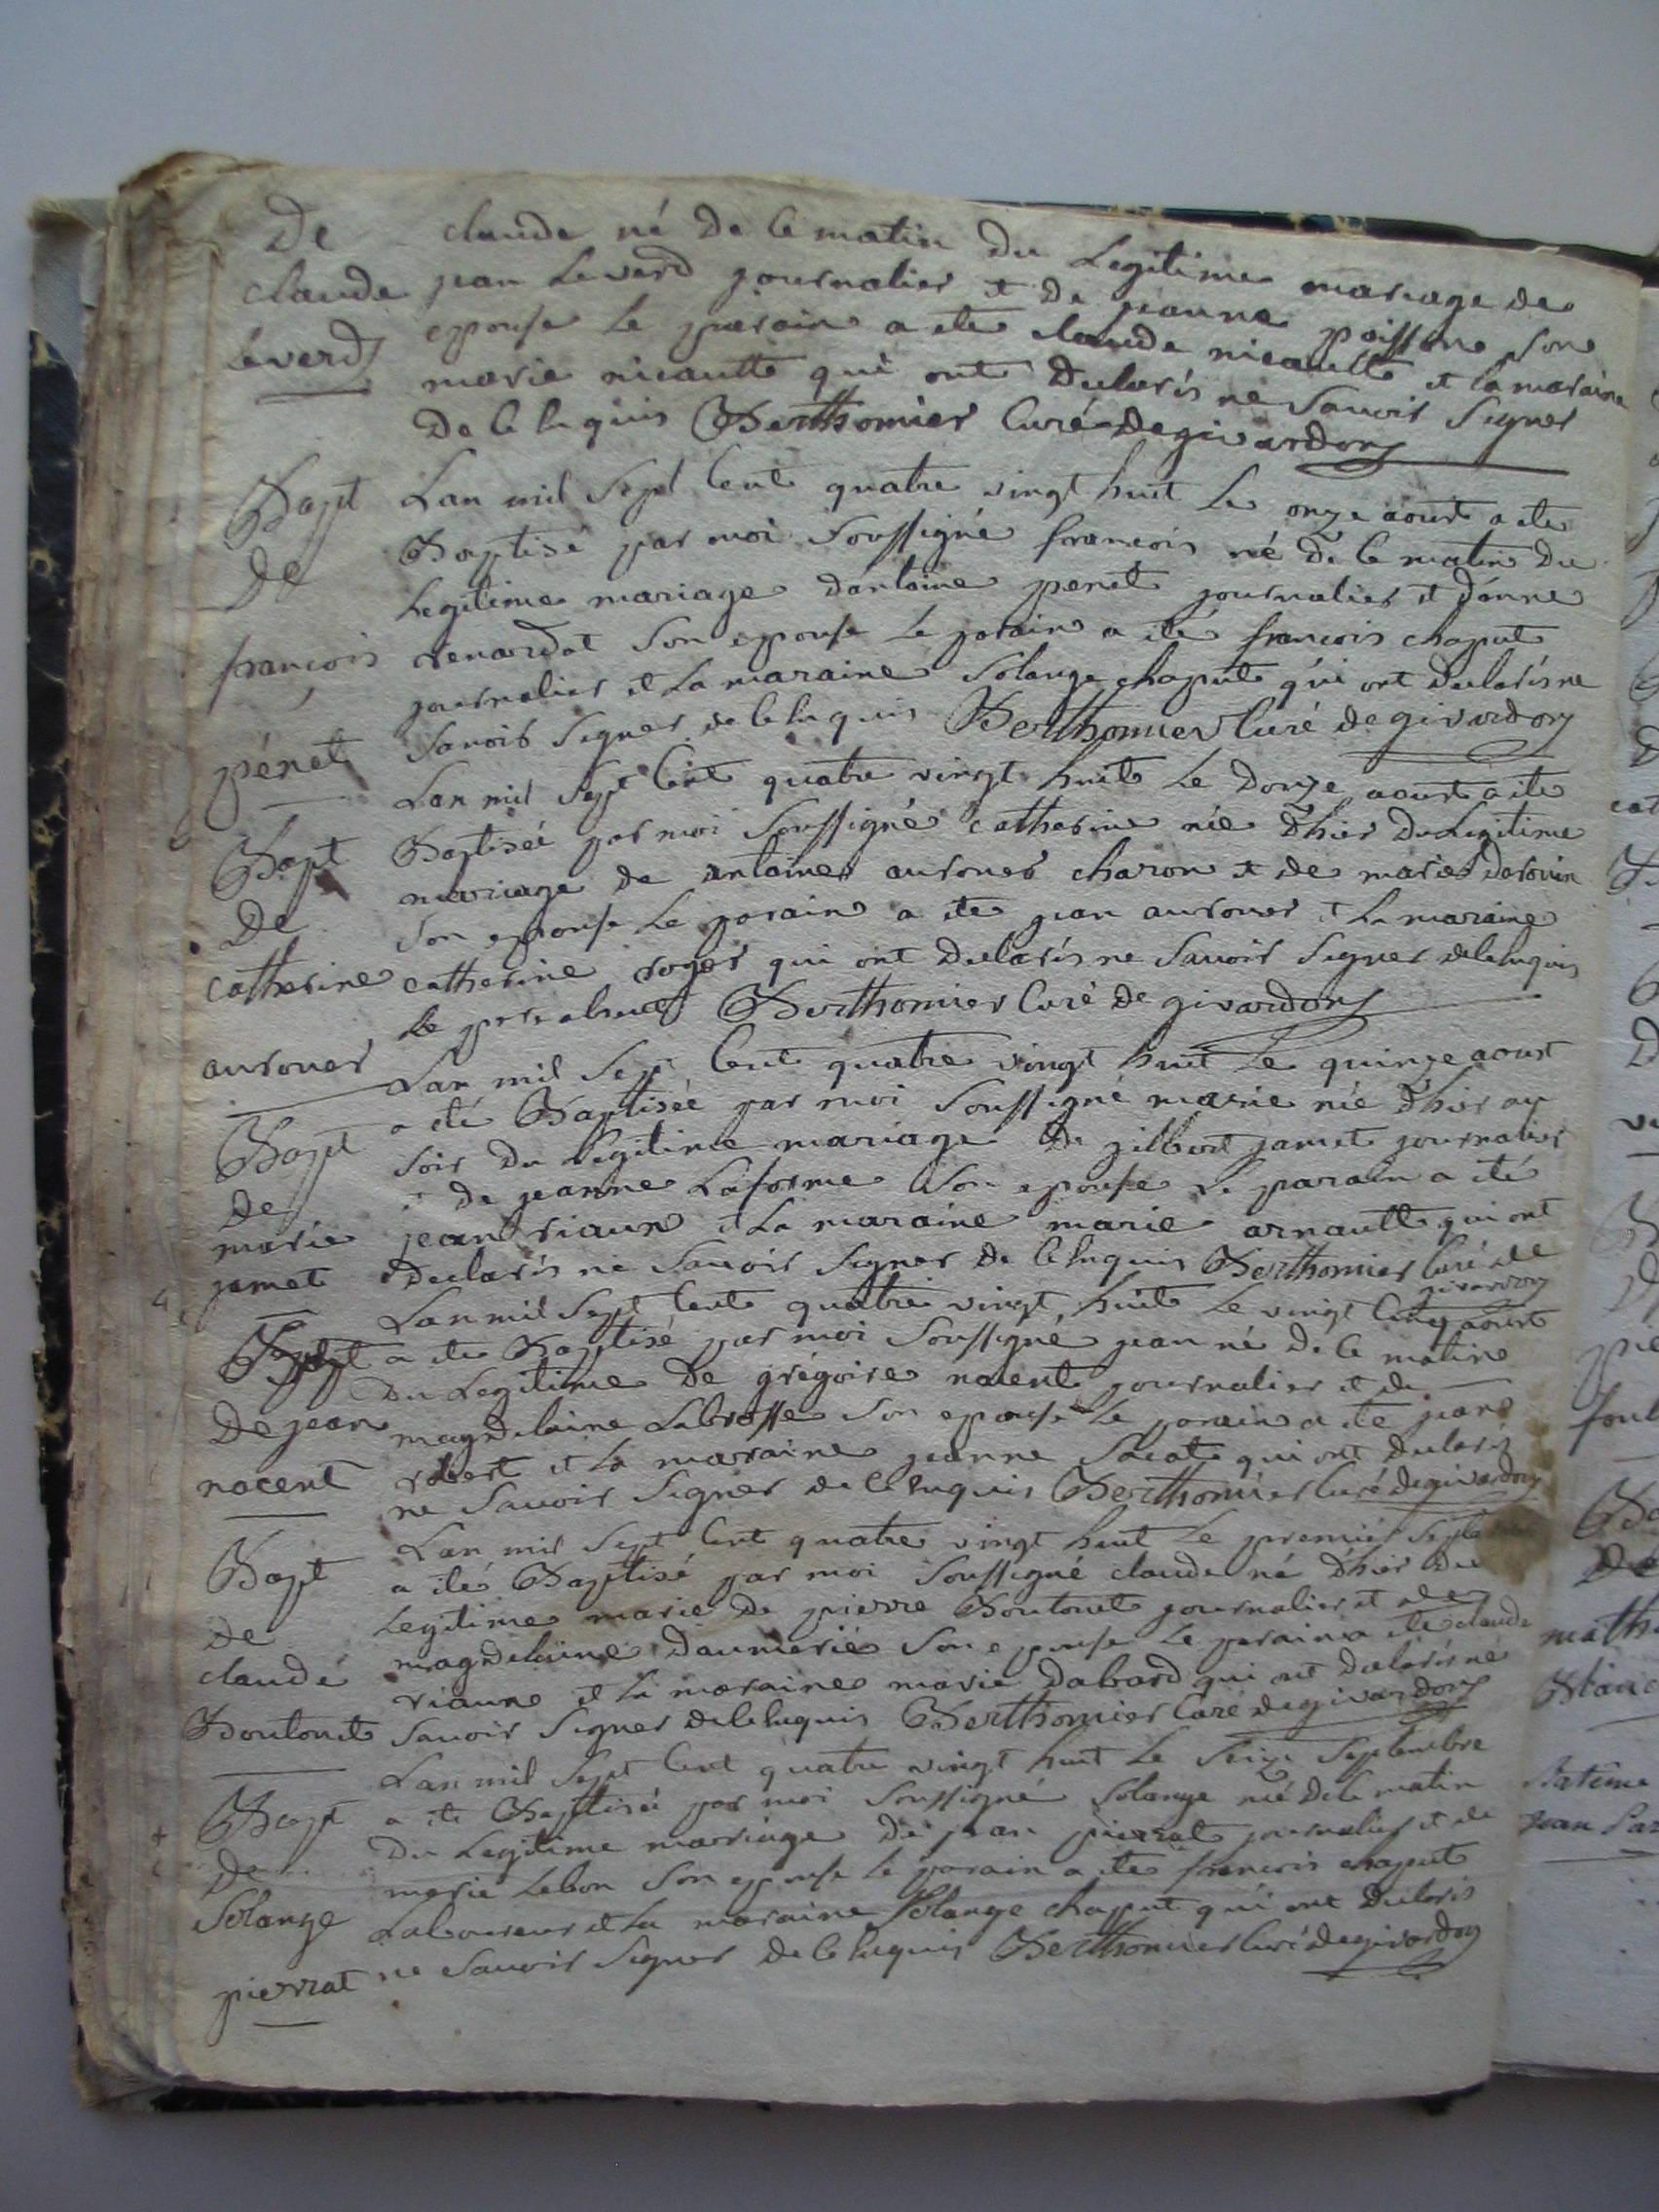 De
claude
leverd
claude né de ce matin du Legitime mariage de
jean Leverd journalier et de jeanne poisson son
epouse le parain a ete claude nicault et la maraine
marie nicault qui ont declarés ne Savoir Signer
de ce enquis Berthomier Curé de givardon
Bapt
De
françois
pénet
Lan mil Sept Cent quatre vingt huit le onze aoust a ete
Baptisé par moi Soussigné francois né de ce matin du
Legitime mariage dantoine penet journalier et danne
renardat Son epouse Le parain a été francois chaput
journalier et La maraine Solange chaput qui ont declarés ne
Savoir Signer de ce enquis Berthomier Curé de givardon
Bapt
De
catherine
aurouer
Lan mil Sept Cent quatre vingt huit Le douze aoust a ete
Baptiseé par moi Soussigné catherine née dhier du Legitime
mariage de antoine aurouer charon et de marie
Son epouse Le parain a ete jean aurouer et La maraine
catherine roger qui ont declarés ne Savoir Signer de ce enquis
Le pere absent Berthomier Curé de givardon
Bapt
De
marie
jamet
Lan mil Sept Cent quatre vingt huit Le quinze aoust
a eté Baptiseé par moi Soussigné marie née dhier au
Soir du legitime mariage de gilbert jamet journalier
et de jeanne Laforme Son epouse Le parain a eté
jean riaux et La maraine marie arnault qui ont
declarés ne Savoir Signer de ce enquis Berthomier Curé de
givardon
Bapt
De jean
nocent
Lan mil Sept Cent quatre vingt huit Le vingt Cinq aoust
a ete Baptisé par moi Soussigné jean né de ce matin
du Legitime de grégoire nocent journalier et de
magdelaine Labrosse Son epouse Le parain a ete jean
robert et La maraine jeanne qui ont declarés
ne Savoir Signer de ce enquis Berthomier Curé de givardon
Bapt
De
claude
Boutonet
Lan mil Sept Cent quatre vingt huit Le premier Septembre
a eté Baptisé par moi Soussigné claude né dhier du
Legitime marie de pierre Boutonet journalier et de
magdelaine Daumerie Son epouse Le parain a ete claude
riaux et La maraine marie dabard qui ont declarés ne
Savoir Signer de ce enquis Berthomier Curé de givardon
Bapt
De
Solange
pierrat
Lan mil Sept Cent quatre vingt huit Le Seize Septembre
a ete Baptisée par moi Soussigné Solange née de ce matin
Du Legitime mariage de jean pierrat journalier et de
marie Lebon Son epouse Le parain a ete francois chaput
Laboureur et La maraine Solange chaput qui ont declarés
ne Savoir Signer de ce enquis Berthomier Curé de givardon